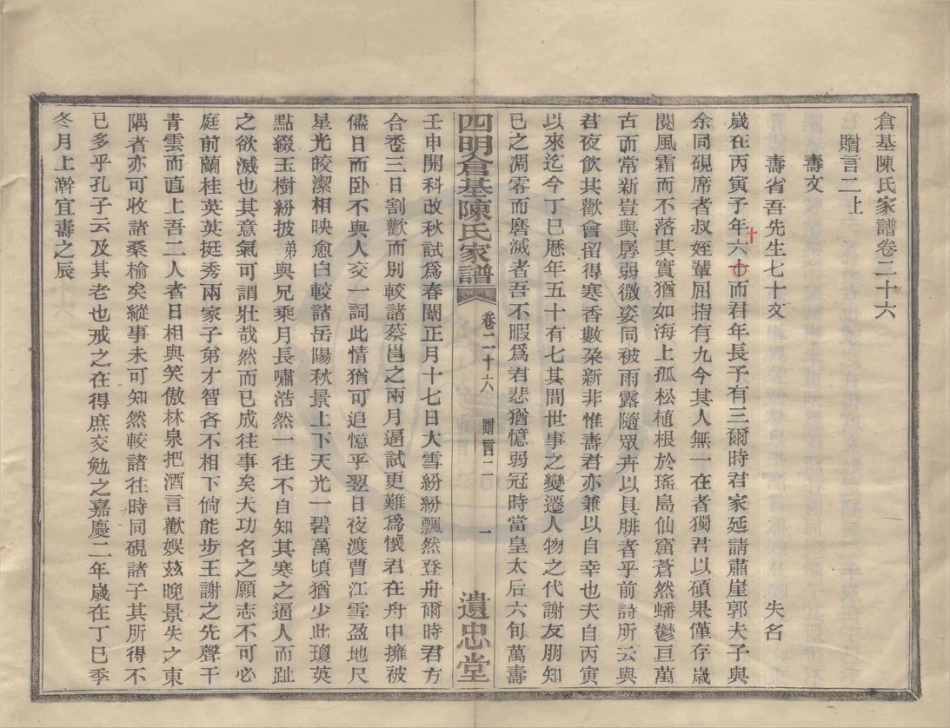 倉基陳氏家譜卷二十六
贈言二上
壽文
壽省吾先生七十文
失名
歲在丙寅予年六十而君年長予有三爾時君家延請肅崖郭夫子與
余同硯席者叔姪輩屈指有九今其人無一在者獨君以碩果僅存歲
閱風霜而不落其實猶如海上孤松植根於瑤島仙窟蒼然蟠鬱亘萬
古而常新豈與孱弱微姿同被雨露隨眾卉以具腓者乎前詩所云與
君夜飲其歡會留得寒香數朶新非惟壽君亦兼以自幸也夫自丙寅
以來迄今丁巳歷年五十有七其間世事之變遷人物之代謝友朋知
己之凋零而磨滅者吾不暇爲君悲猶憶弱冠時當皇太后六旬萬壽
四明倉基陳氏家譜
卷二十六
贈言二
一
遺忠堂
壬申開科改秋試爲春闈正月十七日大雪紛紛飄然登舟爾時君方
合巹三日割歡而別較諸蔡邕之兩月逼試更難爲懷君在舟中擁被
儘日而卧不與人交一詞此情猶可追憶乎翌日夜渡曹江雪盈地尺
星光皎潔相映愈白較諸岳陽秋景上下天光一碧萬頃猶少此瓊英
點綴玉樹紛披弟與兄乘月長嘯浩然一往不自知其寒之逼人而趾
之欲滅也其意氣可謂壯哉然而已成往事矣夫功名之願志不可必
庭前蘭桂英英挺秀兩家子弟才智各不相下倘能步王謝之先聲干
青雲而直上吾二人者日相與笑傲林泉把酒言歡娛茲晚景失之東
隅者亦可收諸桑榆矣縱事未可知然較諸往時同硯諸子其所得不
已多乎孔子云及其老也戒之在得庶交勉之嘉慶二年歲在丁巳季
冬月上澣宜壽之辰